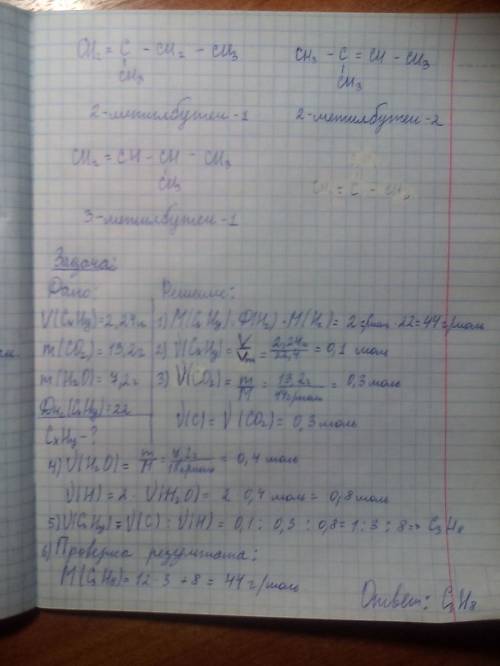 CH₂ = C - CH₂ - CH₃
CH₃
2-метилбутен-1
CH₃ - C = CH - CH₃
CH₃
2-метилбутен-2
CH₂ = CH - CH - CH₃
CH₃
3-метилбутен-1
Задача:
Дано:
V(CxHy)=2,24л
m(CO₂)=13,2г
m(H₂O)=7,2г
Dн₂(CxHy)=22
CxHy-?
Решение:
1) M(CxHy)=D(H₂)·M(H₂)=2г/моль·22=44г/моль
2) ν(CxHy)=V/Vm=2,24л/22,4=0,1 моль
3) ν(CO₂)=m/M=13,2г/44г/моль=0,3моль
ν(C)=ν(CO₂)=0,3моль
4) ν(H₂O)=m/M=7,2г/18г/моль=0,4 моль
ν(H)=2·ν(H₂O)=2·0,4моль=0,8моль
5) ν(CxHy):ν(C):ν(H)=0,1:0,3:0,8=1:3:8=> C₃H₈
6) Проверка результата:
M(C₃H₈)=12·3+8=44г/моль
Ответ: C₃H₈